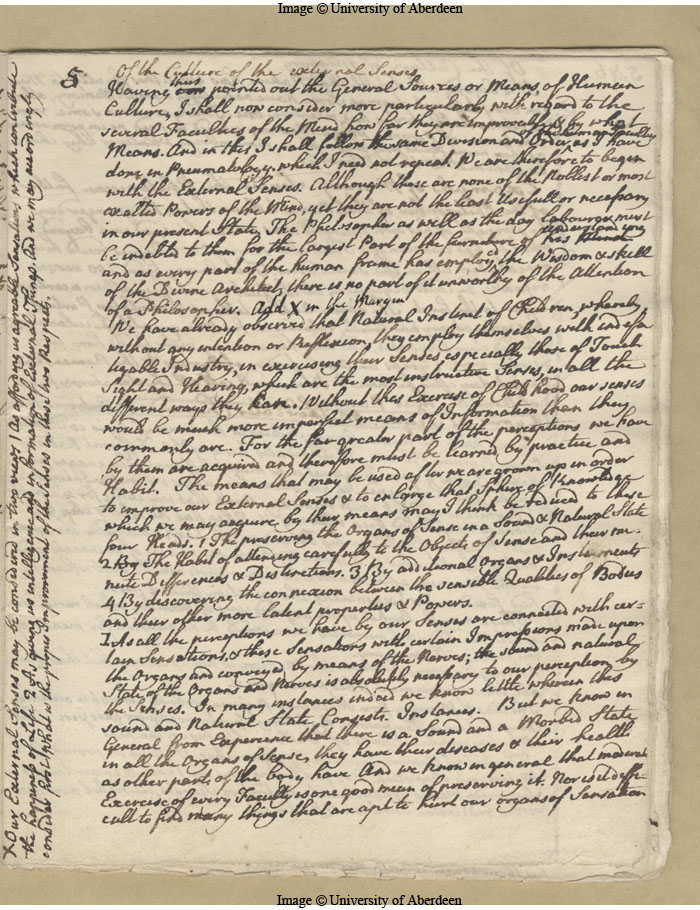 Image © University of Aberdeen
5
Of the Culture of the external Senses
Having thus pointed out the General Sources or Means, of Human
Culture, I shall now consider more particularly with regard to the
several Faculties of the Mind how far they are improveable & by what
Means. And in this I shall follow the same Division and Order, of the human Faculties as I have
done in Pneumatology, which I need not repeat. We are therefore to begin
with the External Senses. Although these are none of the Noblest or most
exalted Powers of the Mind, yet they are not the least Usefull or necessary
in our present State, The Philosopher as well as the day labourer must
be indebted to them for the largest Part of the furniture of his understanding
and as every part of the human frame has employed the Wisdom & skill
of the Divine Architect, there is no part of it unworthy of the Attention
of a Philosopher. Add X in the Margin
We have already observed that Natural Instinct of Children, whereby
without any intention or Reflexion, they employ themselves with indefa
tigable Industry, in exercising their Senses especially those of Touch
Sight and Hearing, which are the most instructive Senses, in all the
different ways they can. Without this Exercise of Childhood our senses
would be much more imperfect means of Information than they
commonly are. For the far greater part of the perceptions we have
by them are acquired and therefore must be learned by practice and
Habit. The means that may be used after we are grown up in order
to improve our External Senses & to enlarge that Sphere of Knowledge
which we may acquire by their means may I think be reduced to these
four Heads. 1 The preserving the Organs of Sense in a Sound & Natural State
2 By The Habit of attending carefully to the Objects of Sense and their mi-
nute Differences & Distinctions. 3 By additional Organs & Instruments
4 By discovering the connexion between the sensible Qualities of Bodies
and their other more latent properties & Powers.
1 As all the perceptions we have by our Senses are connected with cer-
tain Sensations, & these Sensations with certain Impressions made upon
the Organs and conveyed by means of the Nerves; the sound and natural
State of the Organs and Nerves is absolutely necessary to our perception by
the Senses. In many instances indeed we know little wherein this
sound and Natural State Consists. Instances. But we know in
General from Experience that there is a Sound and a Morbid State
in all the Organs of Sense, they have their diseases & their health
as other parts of the body have And we know in general that moderate
Exercise of every Faculty is one good mean of preserving it. Nor is it diffi-
cult to find many things that are apt to hurt our organs of Sensation
X Our External Senses may be considered in two views 1 As affording us agreable Sensations which contribute
the happiness of Life 2 As giving us intelligence and information of External Things. And we may accordingly
consider what is the proper Improvement of the Senses in these two Respects.
Image © University of Aberdeen